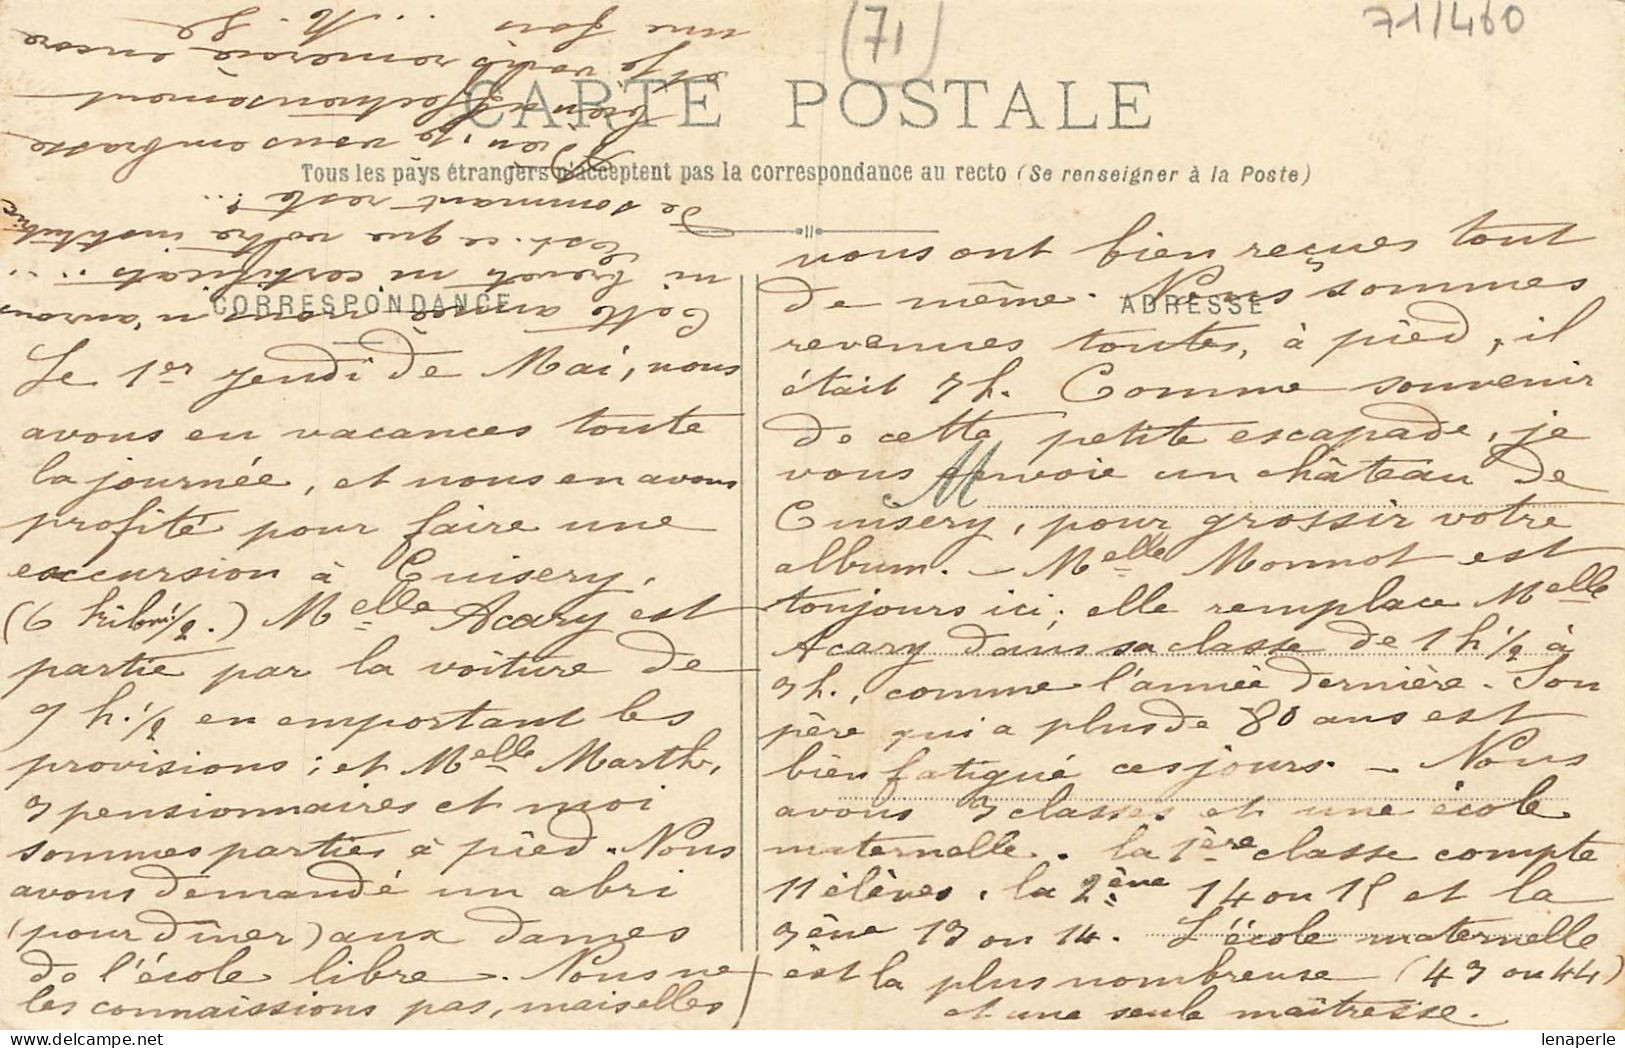 (71)
71/460
CARTE POSTALE
Tous les pays étrangers n'acceptent pas la correspondance au recto (Se renseigner à la Poste)
CORRESPONDANCE
ADRESSE
M
Le 1er jeudi de Mai, nous
avons eu vacances toute
la journée, et nous en avons
profité pour faire une
excursion à Cuisery,
(6 kilom 1/2.) Melle Acary est
partie par la voiture de
9 h. 1/2 en emportant les
provisions ; et Melle Marthe,
3 pensionnaires et moi
sommes parties à pied. Nous
avons demandé un abri
(pour dîner) aux dames
de l'école libre. Nous ne
les connaissions pas, mais elles
vous ont bien reçues tout
de même. Nous sommes
revenues toutes, à pied, il
était 7 h. Comme souvenir
de cette petite escapade, je
vous envoie un château de
Cuisery, pour grossir votre
album. — Melle Monnot est
toujours ici ; elle remplace Melle
Acary dans sa classe de 1 h 1/2 à
3 h., comme l'année dernière. Son
père qui a plus de 80 ans est
bien fatigué ces jours. — Nous
avons 3 classes et une école
maternelle. la 1ère classe compte
11 élèves, la 2ème 14 ou 15 et la
3ème 13 ou 14. L'école maternelle
est la plus nombreuse (43 ou 44)
et une seule maîtresse.
Cette année nous n'aurons
ni brevets ni certificats ...
Est-ce que votre institutrice
de sommant reste ? ..
Bien, je vous embrasse
bien affectionnement
et je vous remercie encore
une fois ...
lenaperle